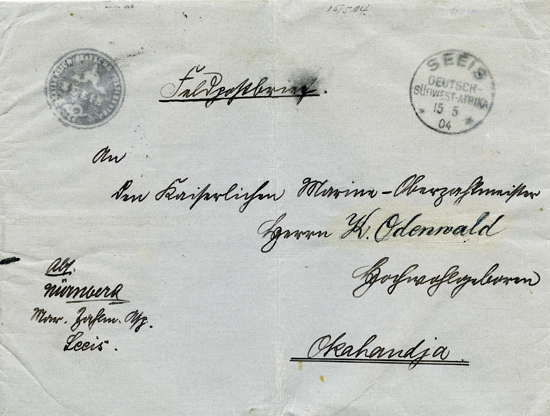 15/5.04.
SEEIS
DEUTSCH-
SÜDWEST-AFRIKA
15 5
04
Feldpostbrief.
An
den Kaiserlichen Marine-Oberzahlmeister
Herrn K. Odenwald
Hochwohlgeboren
Okahandja.
Abs.
Nürnberg
Mar. Zahlm. Asp.
Seeis.